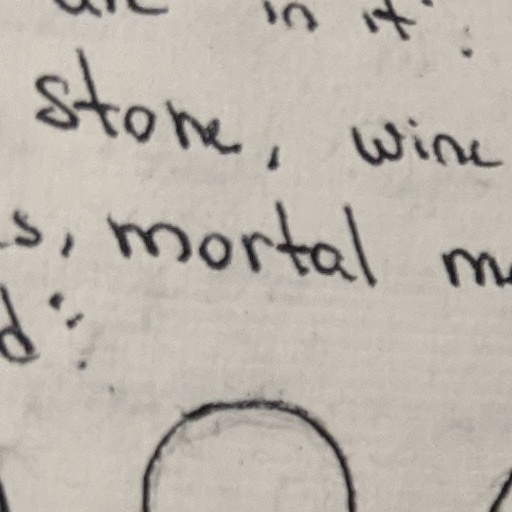 in it".
stone, wine
s, mortal m
d".